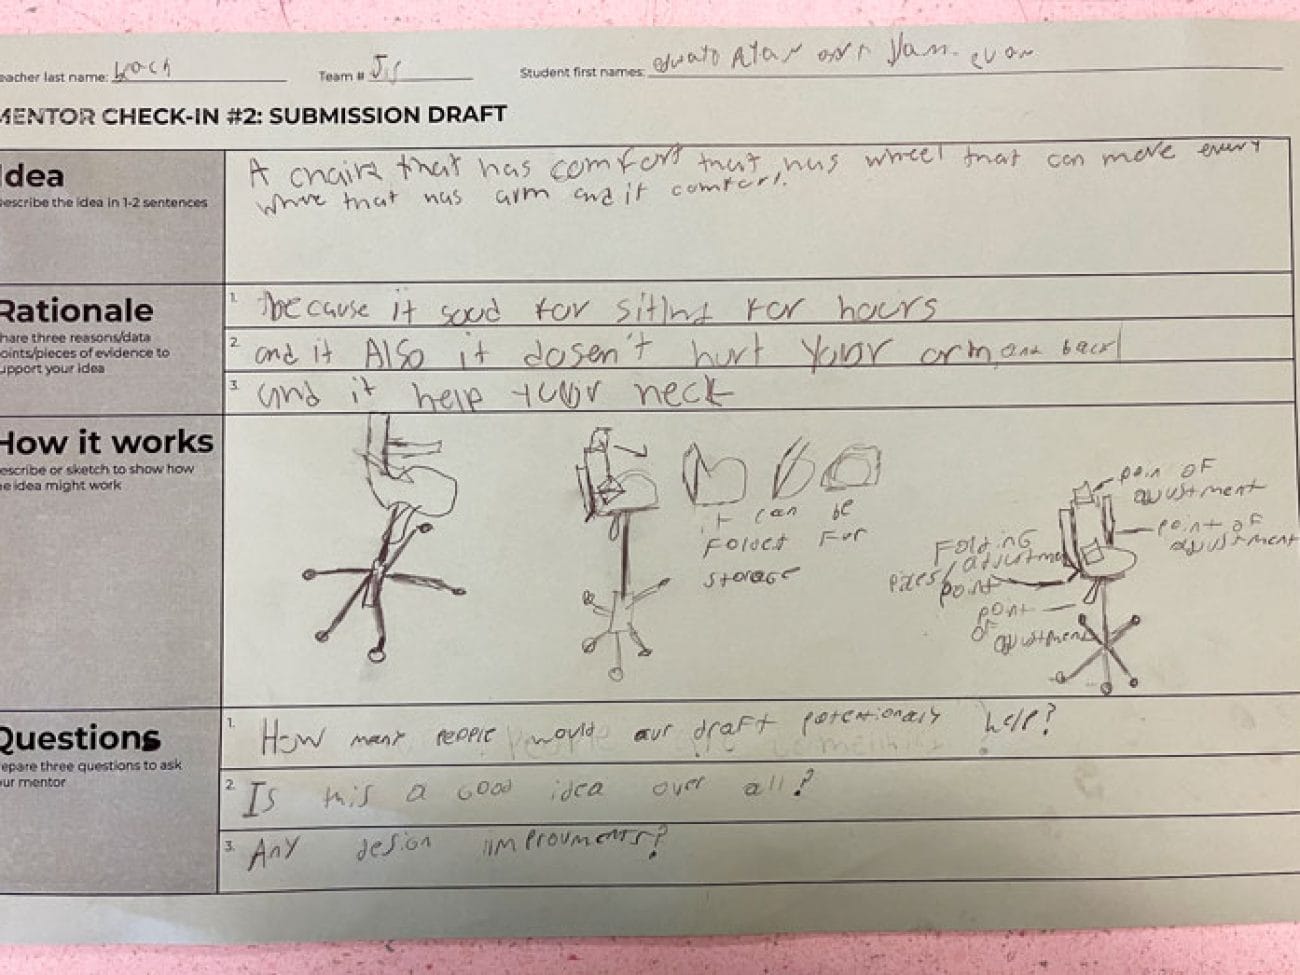 eacher last name:
Team #
Student first names: evan
MENTOR CHECK-IN #2: SUBMISSION DRAFT
Idea
escribe the idea in 1-2 sentences
A chair that has comfort that has wheel that can move every
where that has arm and it comfort.
Rationale
hare three reasons/data
oints/pieces of evidence to
upport your idea
1. because it good for sitting for hours
2. and it Also it dosen't hurt your arm and back
3. and it help your neck
How it works
escribe or sketch to show how
e idea might work
it can be
Folded For
storage
poin of
ajustment
point of
adjustment
Folding
adjustment
point
point
of
ajustment
Questions
epare three questions to ask
ur mentor
1. How many people would our draft potentionaly help?
2. Is this a Good idea over all?
3. Any design improuments?